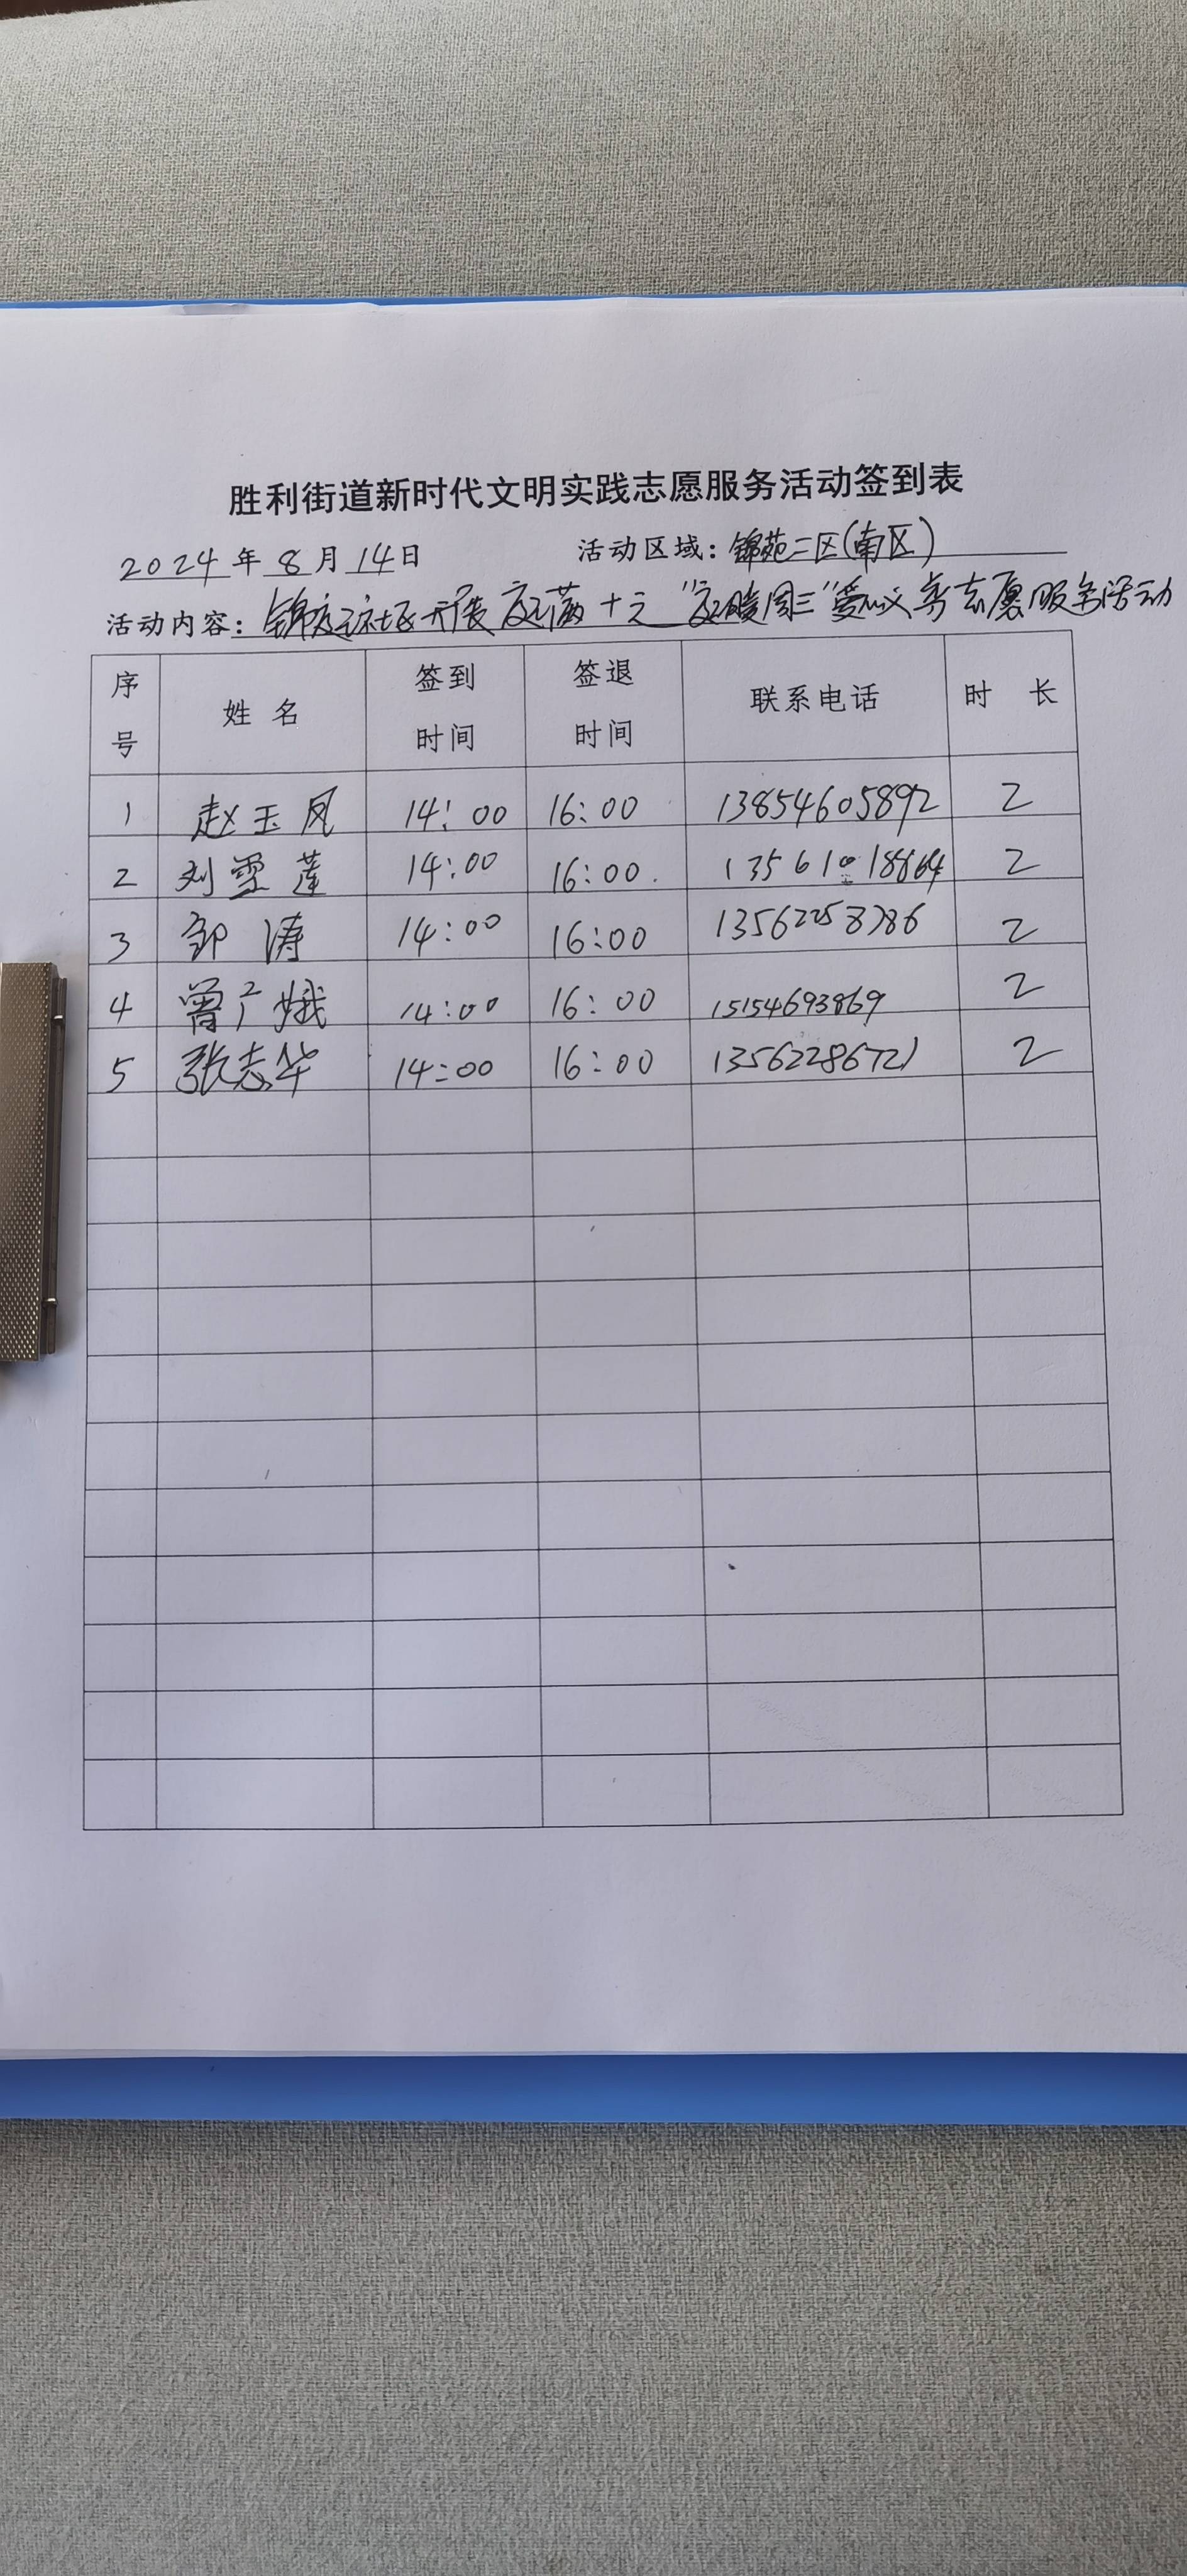 胜利街道新时代文明实践志愿服务活动签到表
2024年8月14日 活动区域：锦苑二区(南区)
活动内容：锦庭社区开展庭满十元"庭暖周三"爱心义剪志愿服务活动
序号 姓名 签到时间 签退时间 联系电话 时长
1 赵玉凤 14:00 16:00 13854605892 2
2 刘雪莲 14:00 16:00 13561018864 2
3 邹涛 14:00 16:00 13562258786 2
4 曾广娥 14:00 16:00 15154693869 2
5 张志华 14:00 16:00 13562286721 2